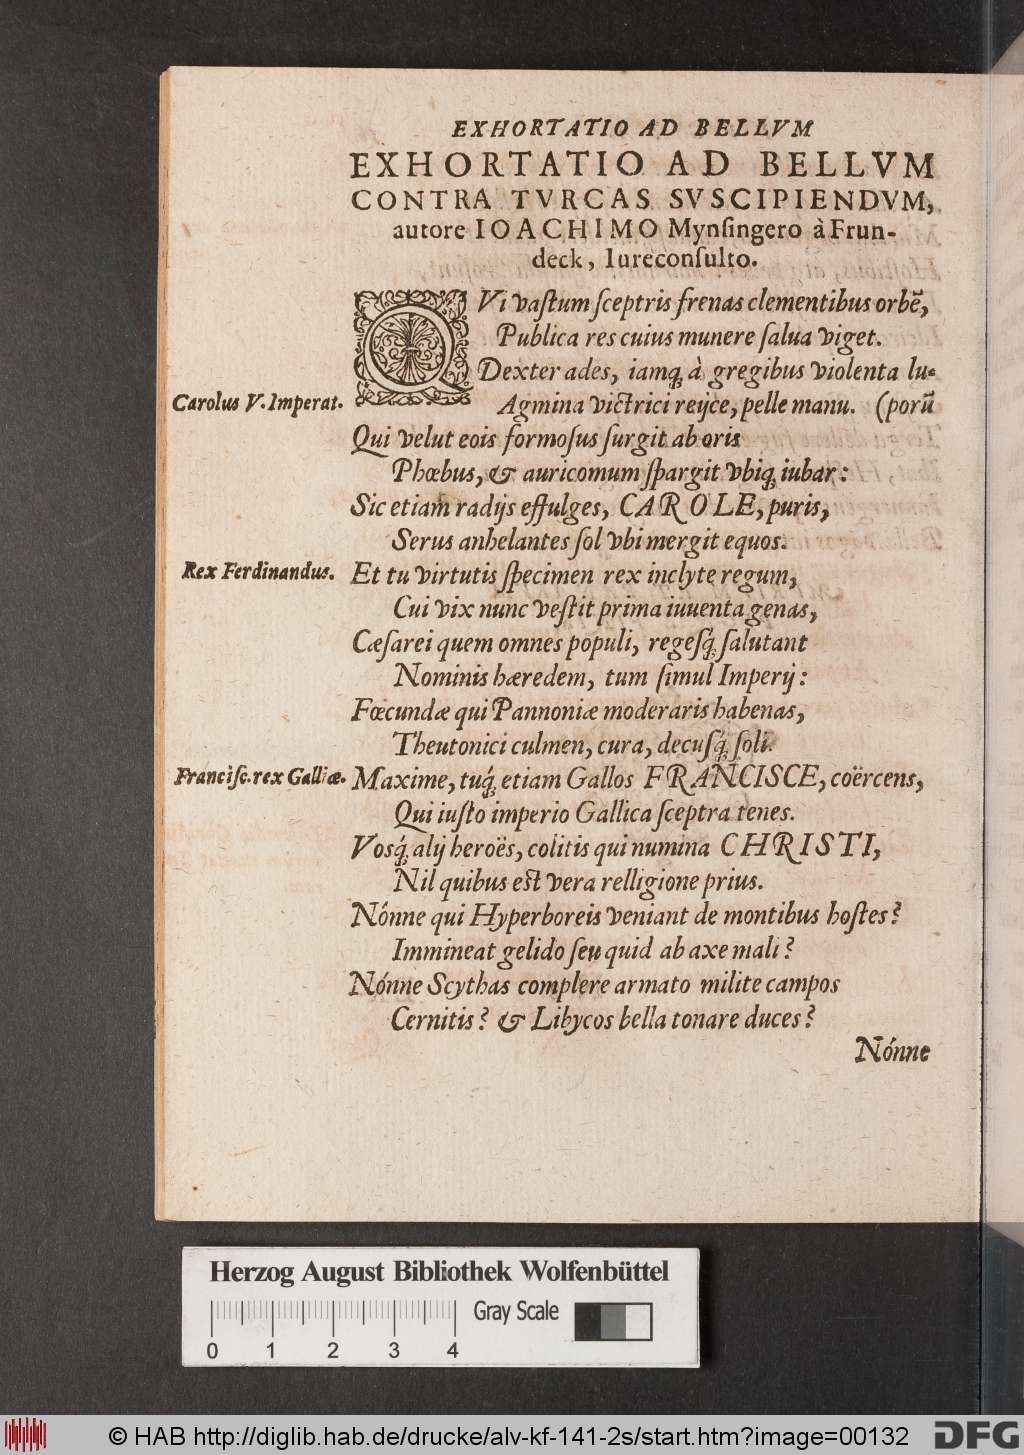 EXHORTATIO AD BELLVM
EXHORTATIO AD BELLVM
CONTRA TVRCAS SVSCIPIENDVM,
autore IOACHIMO Mynſingero à Frun-
deck, Iureconſulto.
QVi vaſtum ſceptris frenas clementibus orbẽ,
Publica res cuius munere ſalua viget.
Dexter ades, iamq́; à gregibus violenta lu-
Carolus V. Imperat.
Agmina victrici reijce, pelle manu. (porũ
Qui velut eois formoſus ſurgit ab oris
Phœbus, & auricomum ſpargit vbiq; iubar:
Sic etiam radijs effulges, CAROLE, puris,
Serus anhelantes ſol vbi mergit equos.
Rex Ferdinandus.
Et tu virtutis ſpecimen rex inclyte regum,
Cui vix nunc veſtit prima iuuenta genas,
Cæſarei quem omnes populi, regeſq́; ſalutant
Nominis hæredem, tum ſimul Imperij:
Fœcundæ qui Pannoniæ moderaris habenas,
Theutonici culmen, cura, decuſq́; ſoli.
Franciſc. rex Galliæ.
Maxime, tuq́; etiam Gallos FRANCISCE, coërcens,
Qui iuſto imperio Gallica ſceptra tenes.
Voſq́; alij heroës, colitis qui numina CHRISTI,
Nil quibus eſt vera relligione prius.
Nónne qui Hyperboreis veniant de montibus hoſtes?
Immineat gelido ſeu quid ab axe mali?
Nónne Scythas complere armato milite campos
Cernitis? & Libycos bella tonare duces?
Nónne
Herzog August Bibliothek Wolfenbüttel
Gray Scale
0 1 2 3 4
© HAB http://diglib.hab.de/drucke/alv-kf-141-2s/start.htm?image=00132
DFG